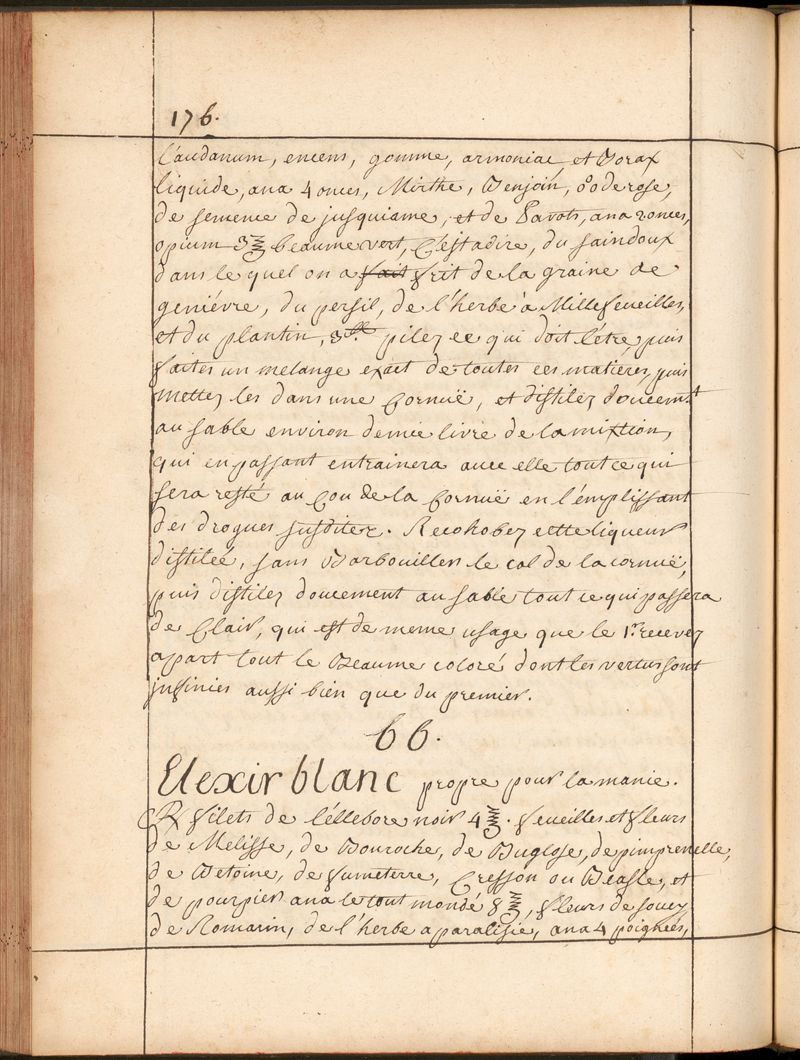 176.
l'audanum, encens, gomme, armoniac, et Borax
liquide, ana 4 onces, Mirthe, Benjoin, de rose,
de semence de jusquiame, et de Pavots, ana 2 onces,
opium 3 ℥ beaume vert, C'est adire, du saindoux
dans le quel on a fait frit de la graine de
geniévre, du persil, de l'herbe à Millefeueilles,
et du plantin, 3 ll. pilez ce qui doit l'étre, puis
faites un melange exact de toutes ces matieres, puis
mettez les dans une Cornuë, et distilez doucem.t
au sable environ demie livre de la mixtion,
qui en passant entrainera avec elle tout ce qui
sera resté au Cou de la Cornuë en l'émplissant
des drogues susditez. Recohobez cette liqueur
distileé, sans Barbouiller le col de la cornuë,
puis distilez doucement au sable tout ce qui passera
de Clair, qui est de meme usage que le 1.er recevez
apart tout le Beaume coloré dont les vertus sont
jnfinies aussi bien que du premier.
66.
Elexir blanc propre pour la manie.
℞ filets de l'éllebore noir 4 ℥. feueilles et fleurs
de Melisse, de Bouroche, de Buglose, de pimprenelle,
de Betoine, de fumeterre, Cresson ou Beasle, et
de pourpier ana le tout mondé 8 ℥, fleurs de soucy
de Romarin, de l'herbe a paralisie, ana 4 poigneés,